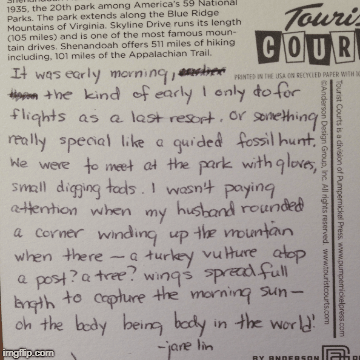 1935, the 20th park among America's 59 National
Parks. The park extends along the Blue Ridge
Mountains of Virginia. Skyline Drive runs its length
(105 miles) and is one of the most famous moun-
tain drives. Shenandoah offers 511 miles of hiking
including, 101 miles of the Appalachian Trail.
Touri
COUR
PRINTED IN THE USA ON RECYCLED PAPER WITH
It was early morning,
the kind of early I only do for
flights as a last resort. Or something
really special like a guided fossil hunt.
We were to meet at the park with gloves,
small digging tools. I wasn't paying
attention when my husband rounded
a corner winding up the mountain
when there — a turkey vulture atop
a post? a tree? wings spread full
length to capture the morning sun —
oh the body being body in the world!
-jane lin
Tourist Courts is a division of Pumpernickel Press. www.pumpernickelpress.com
©Anderson Design Group, Inc. All rights reserved. www.touristcourts.com
BY ANDERSON
imgflip.com